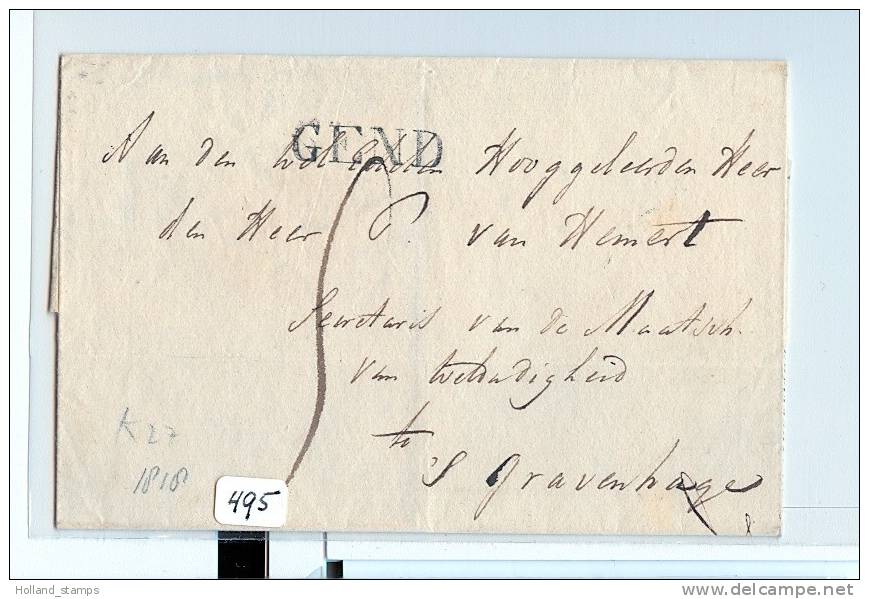 GEND
Aan den WelEdelen Hooggeleerden Heer
den Heer P. van Hemert
Secretaris van de Maatsch.
van Weldadigheid
te
's Gravenhage
K 27
1818
495
Holland_stamps
www.delcampe.net